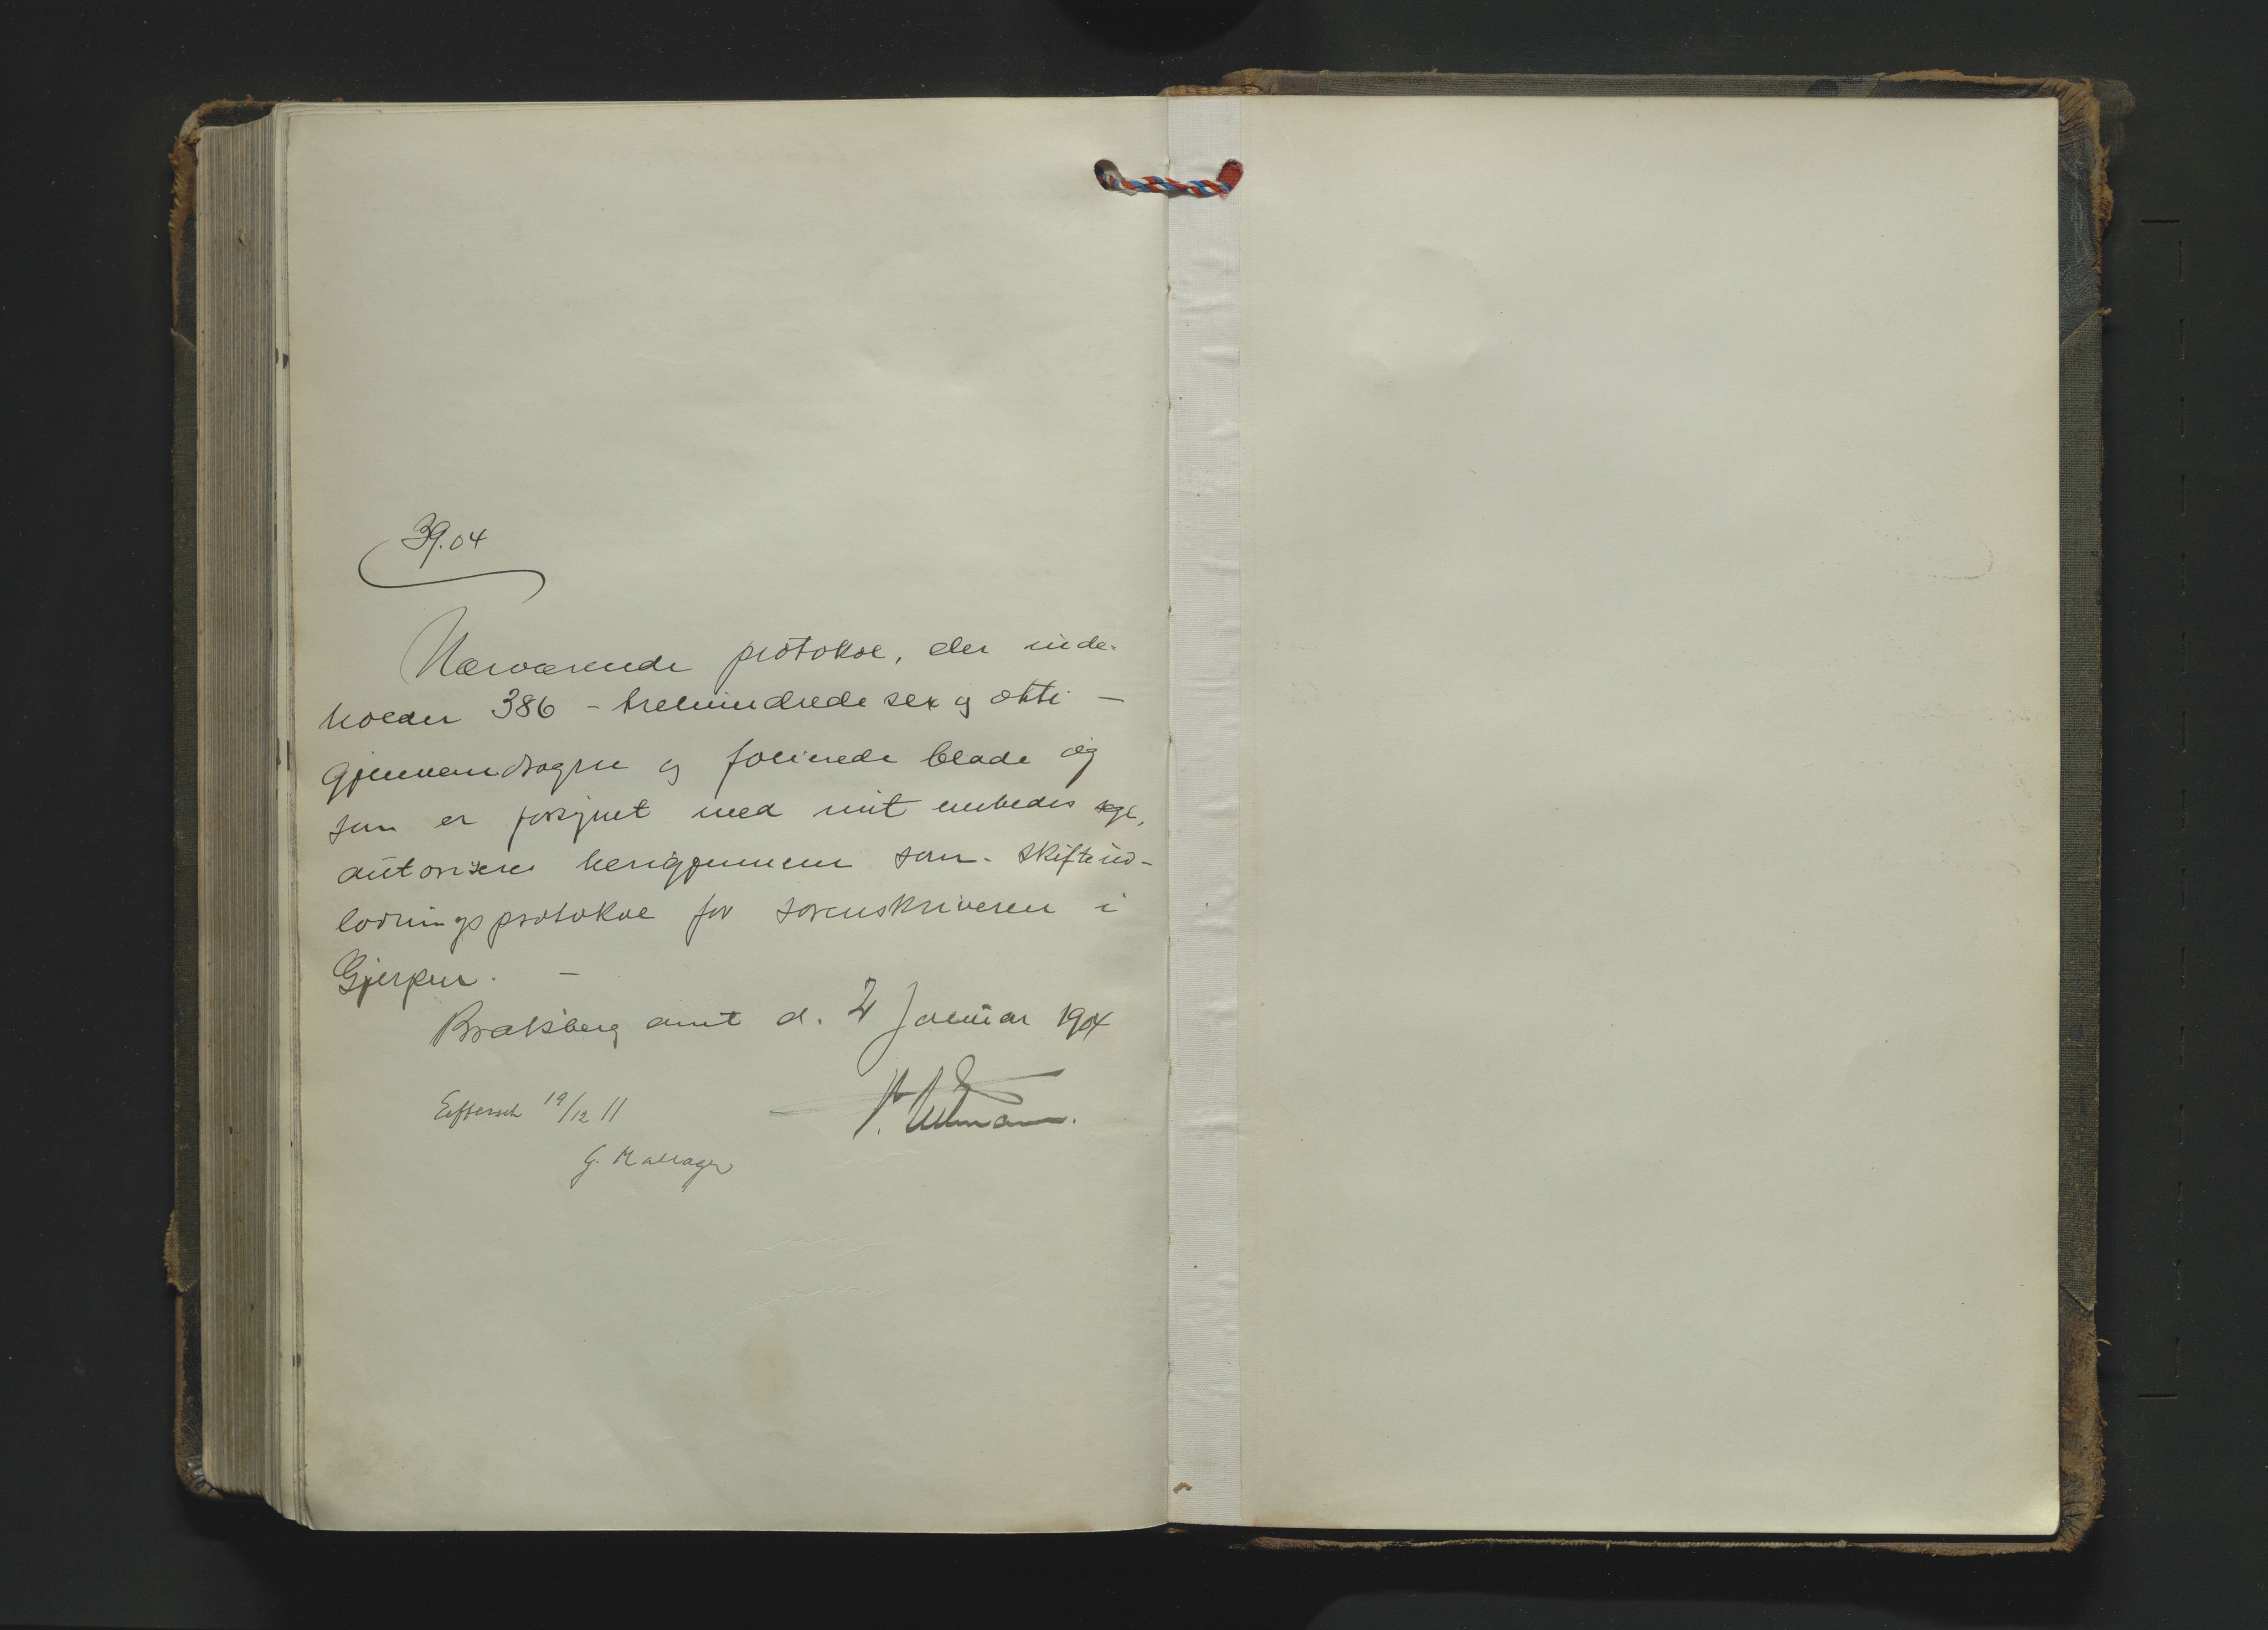 39.04
Nærværende protokol, der inde-
holder 386 - trehundrede sex og otti -
gjennemdragne og folierede blade og
som er forsynet med mit embedes segl,
autoriseres herigjennem som skifteud-
lodningsprotokol for sorenskriveren i
Gjerpen. -
Bratsberg amt d. 21 Januar 1904
V. Ullmann.
Efterseet 19/12 11